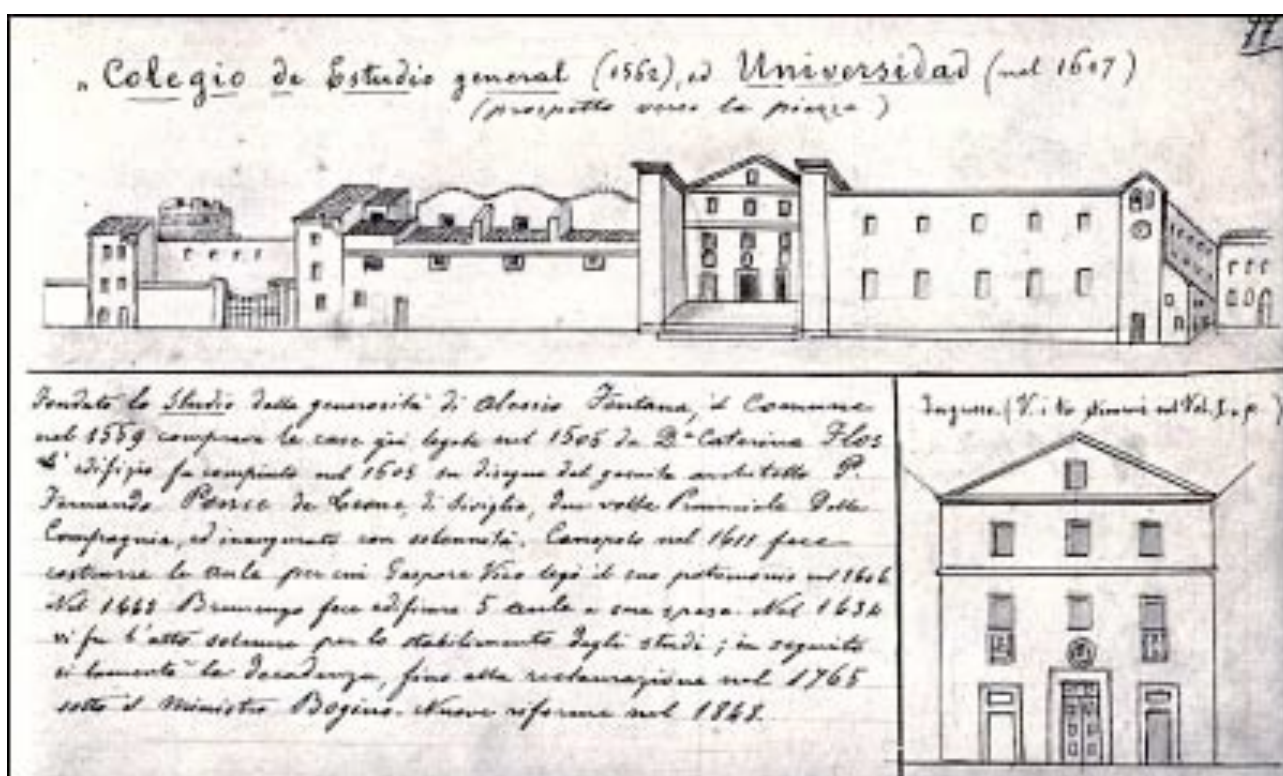 77
„ Colegio de Estudio general (1562), ed Universidad (nel 1617)
(prospetto verso la piazza)
Fondato lo Studio dalla generosità di Alessio Fontana, il Comune
nel 1559 comprava le case già legate nel 1505 da Dª Caterina Flos
L'edifizio fu compiuto nel 1605 su disegno del gesuita architetto P.
Fernando Ponce de Leone, di Siviglia, due volte Provinciale della
Compagnia, ed inaugurato con solennità. Canopolo nel 1611 fece
costrurre le aule per cui Gaspare Vico legò il suo patrimonio nel 1606
Nel 1663 Brunengo fece edificare 5 aule a sue spese. Nel 1634
vi fu l'atto solenne per lo stabilimento degli studi; in seguito
si lamentò la decadenza, fino alla restaurazione nel 1765
sotto il Ministro Bogino. Nuove riforme nel 1848.
Ingresso (V. nel Vol. I. p. )